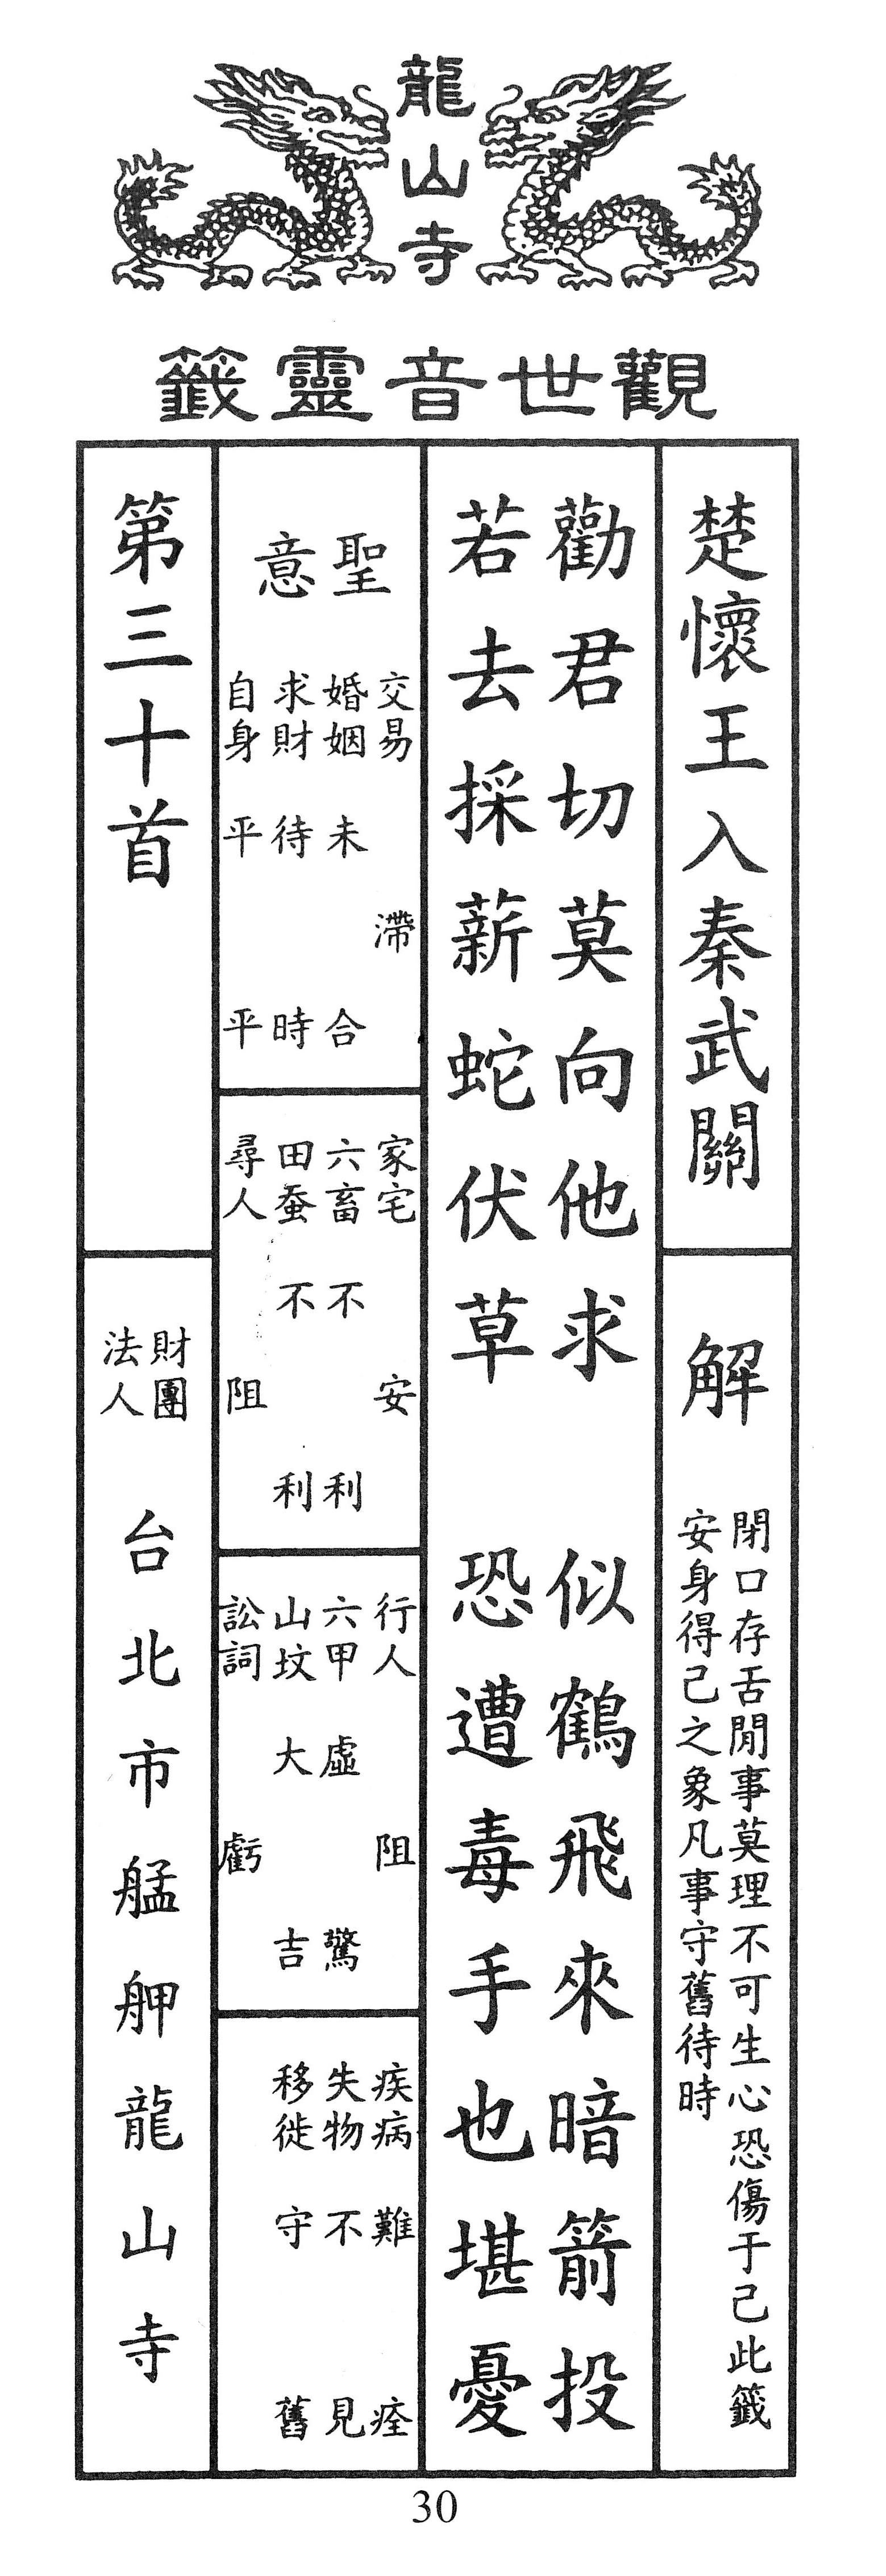 龍山寺
觀世音靈籤
楚懷王入秦武關
解
閉口存舌閒事莫理不可生心恐傷于己此籤
安身得己之象凡事守舊待時
勸君切莫向他求 似鶴飛來暗箭投
若去採薪蛇伏草 恐遭毒手也堪憂
聖意
交易 滯
婚姻 未合
求財 待時
自身 平平
家宅 安
六畜 不利
田蚕 不利
尋人 阻
行人 阻
六甲 虛驚
山坟 大吉
訟詞 虧
疾病 難痊
失物 不見
移徙 守舊
第三十首
財團
法人
台北市艋舺龍山寺
30